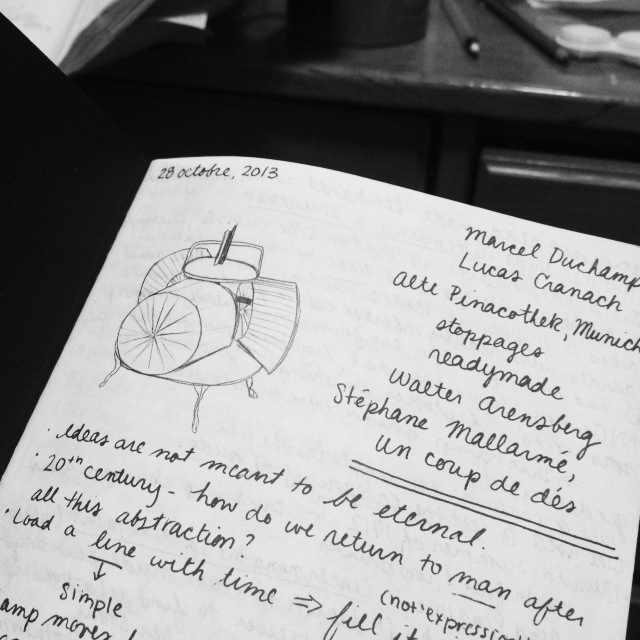 28 octobre, 2013
Marcel Duchamp
Lucas Cranach
Alte Pinacothek, Munich
stoppages
readymade
Walter Arensberg
Stéphane Mallarmé,
un coup de dés
· Ideas are not meant to be eternal.
· 20th century - how do we return to man after
all this abstraction?
· Load a line with time ⇒ fill it
↓
simple
(not expression
amp moves